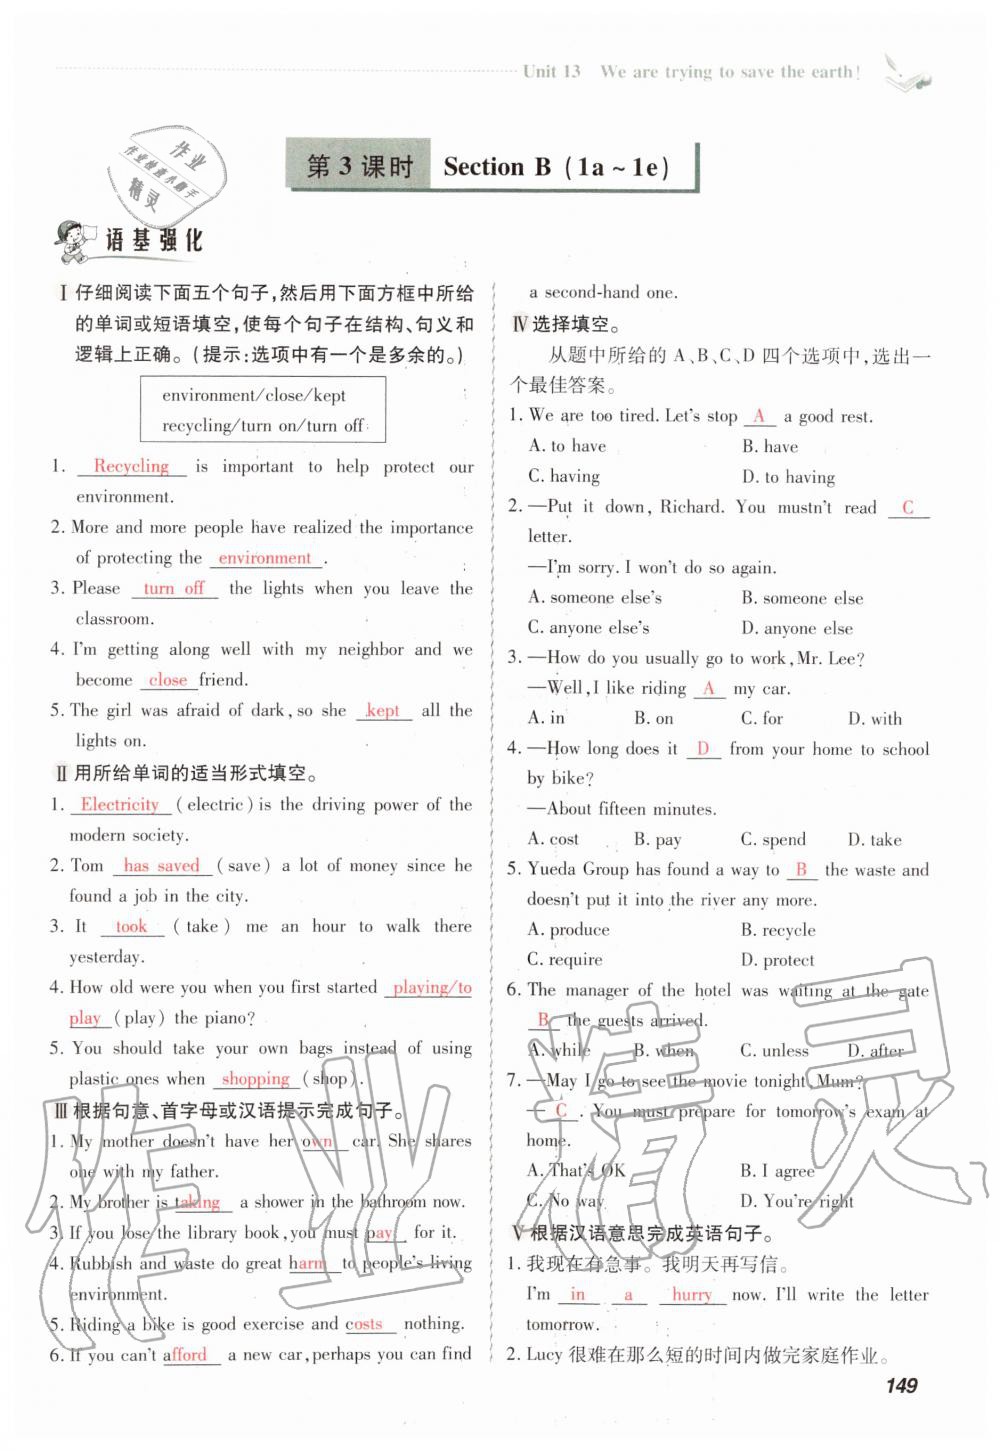 Unit 13 We are trying to save the earth!
第3课时 Section B (1a~1e)
作业
作业检查小助手
精灵
语基强化
Ⅰ 仔细阅读下面五个句子,然后用下面方框中所给
的单词或短语填空,使每个句子在结构、句义和
逻辑上正确。(提示:选项中有一个是多余的。)
environment/close/kept
recycling/turn on/turn off
1. Recycling is important to help protect our
environment.
2. More and more people have realized the importance
of protecting the environment .
3. Please turn off the lights when you leave the
classroom.
4. I'm getting along well with my neighbor and we
become close friend.
5. The girl was afraid of dark, so she kept all the
lights on.
Ⅱ 用所给单词的适当形式填空。
1. Electricity (electric) is the driving power of the
modern society.
2. Tom has saved (save) a lot of money since he
found a job in the city.
3. It took (take) me an hour to walk there
yesterday.
4. How old were you when you first started playing/to
play (play) the piano?
5. You should take your own bags instead of using
plastic ones when shopping (shop).
Ⅲ 根据句意、首字母或汉语提示完成句子。
1. My mother doesn't have her own car. She shares
one with my father.
2. My brother is taking a shower in the bathroom now.
3. If you lose the library book, you must pay for it.
4. Rubbish and waste do great harm to people's living
environment.
5. Riding a bike is good exercise and costs nothing.
6. If you can't afford a new car, perhaps you can find
a second-hand one.
Ⅳ 选择填空。
从题中所给的 A、B、C、D 四个选项中,选出一
个最佳答案。
1. We are too tired. Let's stop A a good rest.
A. to have B. have
C. having D. to having
2. —Put it down, Richard. You mustn't read C
letter.
—I'm sorry. I won't do so again.
A. someone else's B. someone else
C. anyone else's D. anyone else
3. —How do you usually go to work, Mr. Lee?
—Well, I like riding A my car.
A. in B. on C. for D. with
4. —How long does it D from your home to school
by bike?
—About fifteen minutes.
A. cost B. pay C. spend D. take
5. Yueda Group has found a way to B the waste and
doesn't put it into the river any more.
A. produce B. recycle
C. require D. protect
6. The manager of the hotel was waiting at the gate
B the guests arrived.
A. while B. when C. unless D. after
7. —May I go to see the movie tonight, Mum?
— C . You must prepare for tomorrow's exam at
home.
A. That's OK B. I agree
C. No way D. You're right
Ⅴ 根据汉语意思完成英语句子。
1. 我现在有急事。我明天再写信。
I'm in a hurry now. I'll write the letter
tomorrow.
2. Lucy 很难在那么短的时间内做完家庭作业。
149
作业精灵